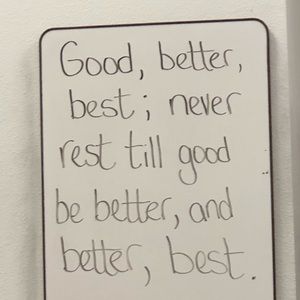 Good, better,
best; never
rest till good
be better, and
better, best.